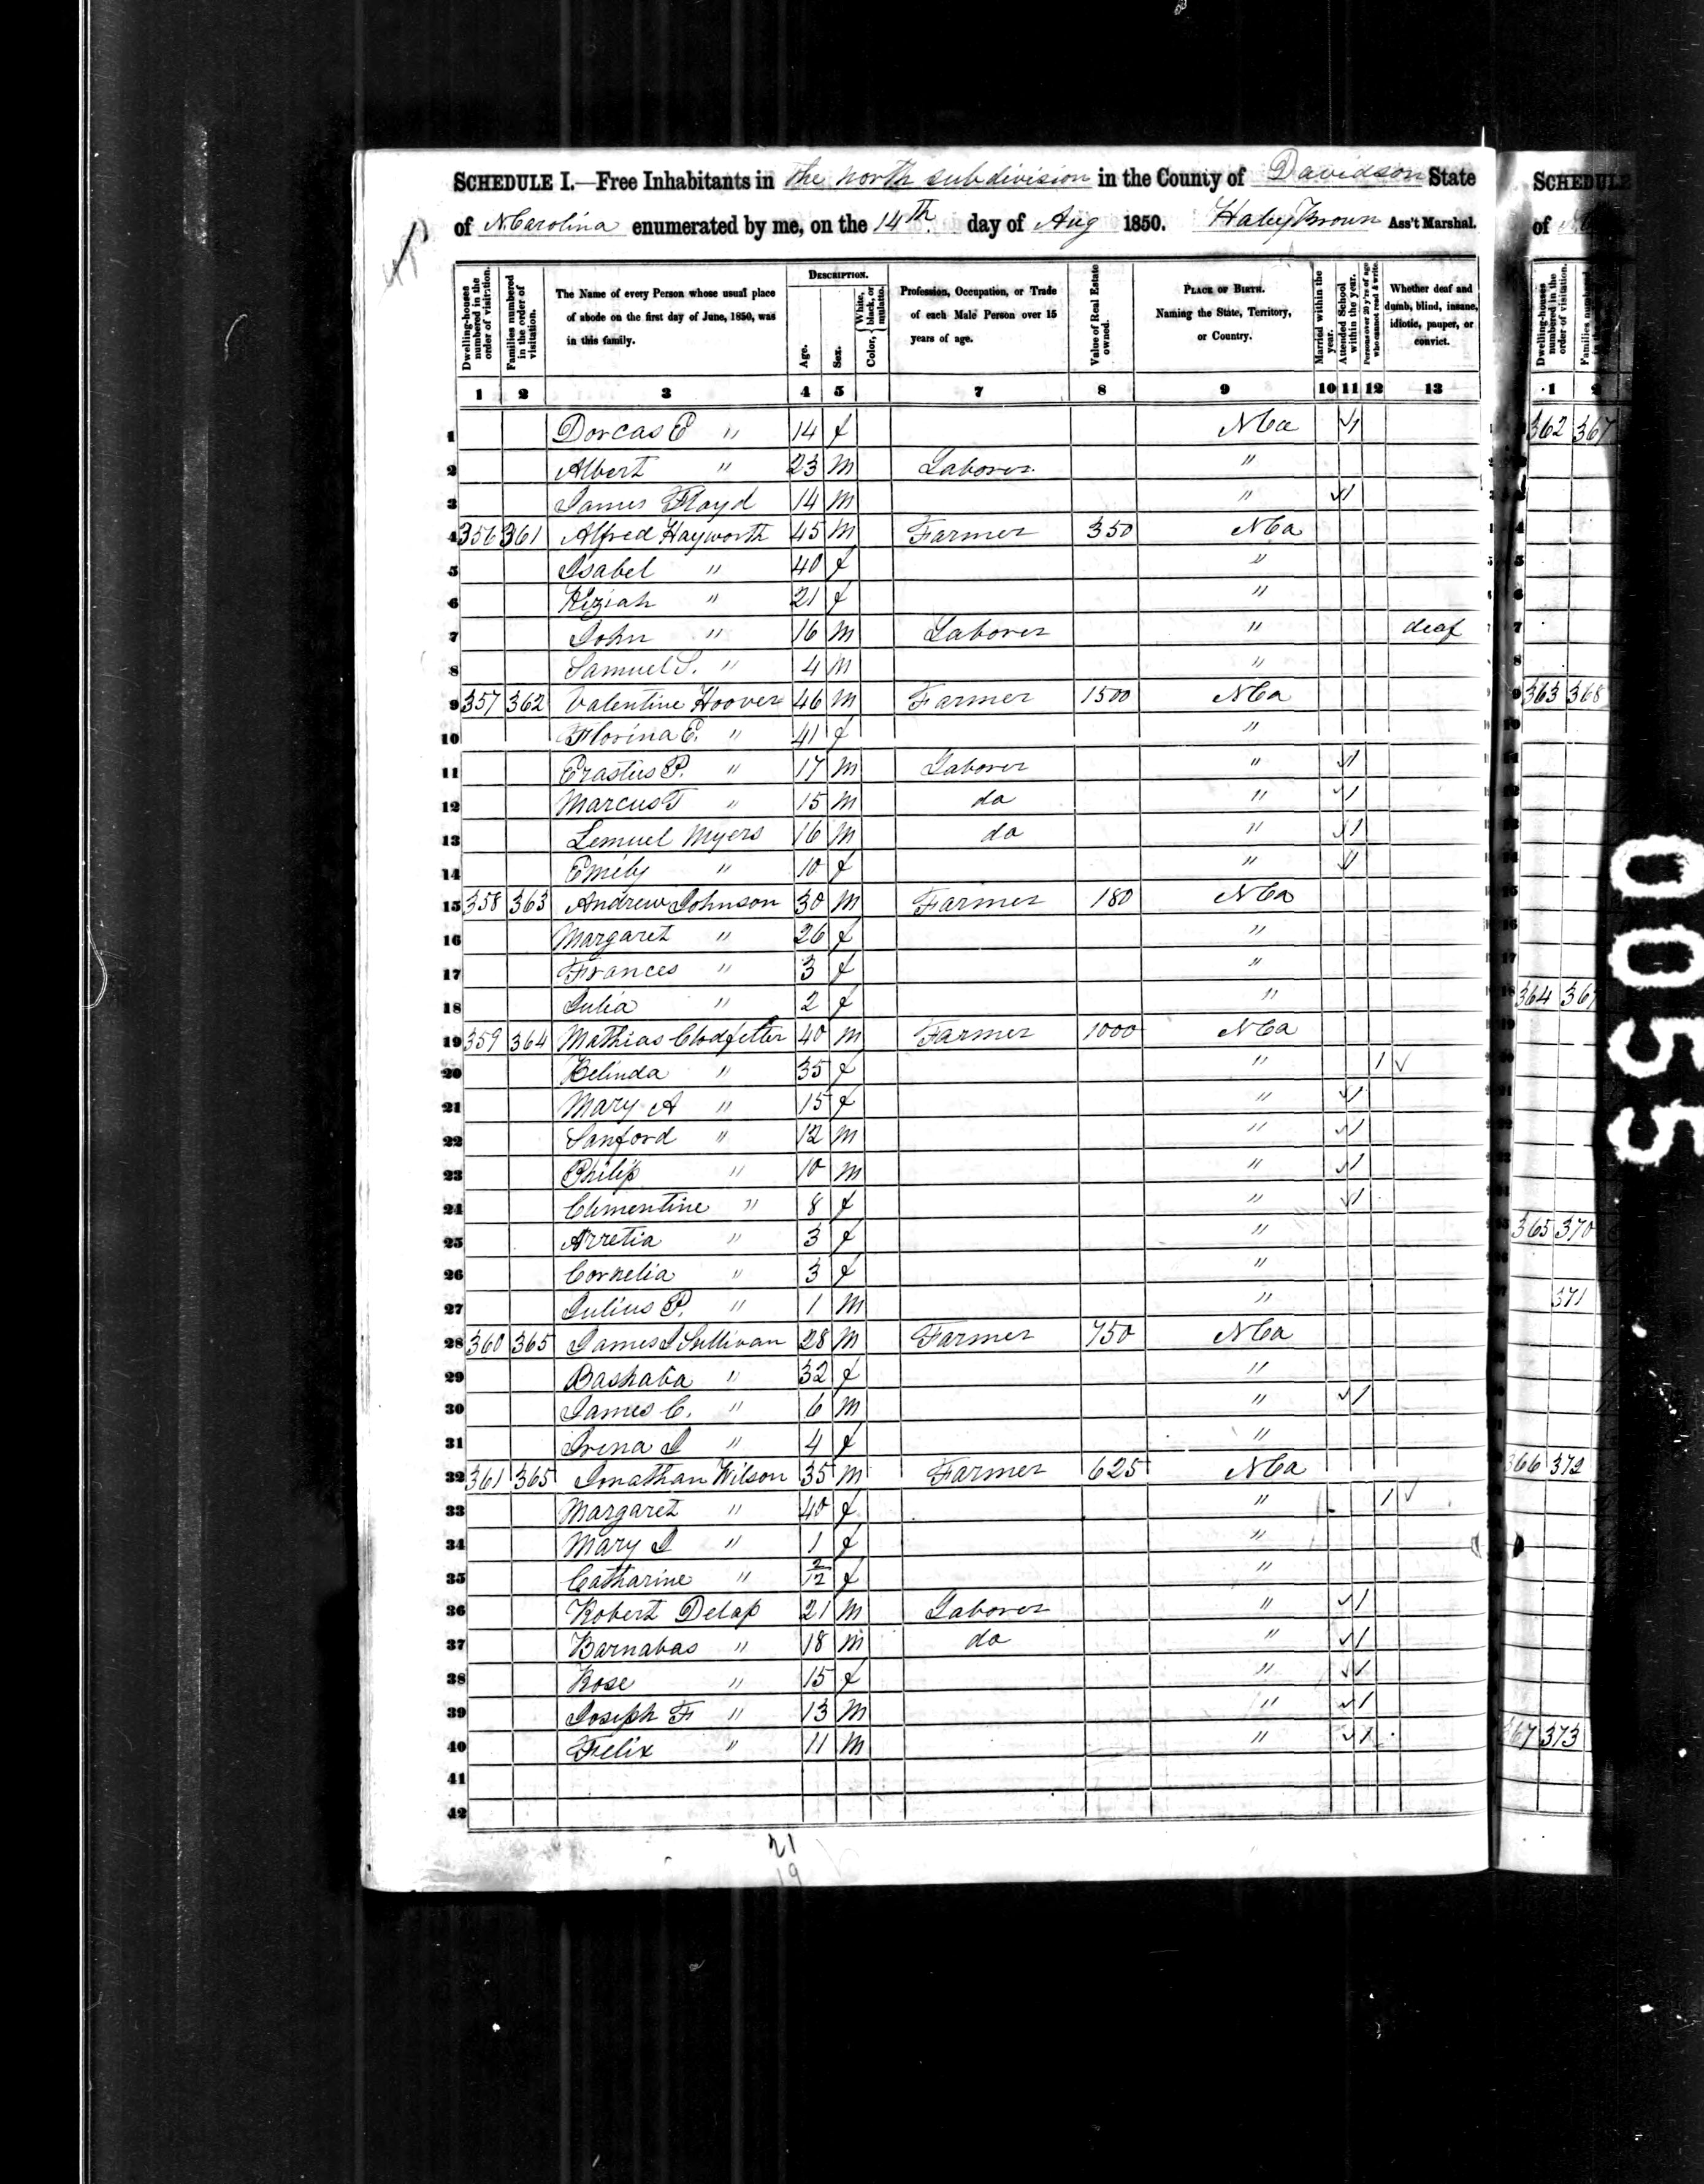 SCHEDULE I.—Free Inhabitants in the north subdivision in the County of Davidson State
of N.Carolina enumerated by me, on the 14th day of Aug 1850. Haley Brown Ass't Marshal.
Dwelling-houses numbered in the order of visitation.
Families numbered in the order of visitation.
The Name of every Person whose usual place of abode on the first day of June, 1850, was in this family.
DESCRIPTION.
Age.
Sex.
Color, { White, black, or mulatto.
Profession, Occupation, or Trade of each Male Person over 15 years of age.
Value of Real Estate owned.
PLACE OF BIRTH. Naming the State, Territory, or Country.
Married within the year.
Attended School within the year.
Persons over 20 y'rs of age who cannot read & write.
Whether deaf and dumb, blind, insane, idiotic, pauper, or convict.
1 2 3 4 5 7 8 9 10 11 12 13
1 Dorcas E " 14 f NCa √1
2 Albert " 23 M Laborer "
3 James Floyd 14 M " √1
4 356 361 Alfred Hayworth 45 M Farmer 350 NCa
5 Isabel " 40 f "
6 Keziah " 21 f "
7 John " 16 M Laborer " deaf
8 Samuel S. " 4 M "
9 357 362 Valentine Hoover 46 M Farmer 1500 NCa
10 Florina E. " 41 f "
11 Erastus P. " 17 M Laborer " √1
12 Marcus T " 15 M do " √1
13 Lemuel Myers 16 M do " √1
14 Emily " 10 f " √1
15 358 363 Andrew Johnson 30 M Farmer 180 NCa
16 Margaret " 26 f "
17 Frances " 3 f "
18 Julia " 2 f "
19 359 364 Mathias Clodfelter 40 M Farmer 1000 NCa
20 Belinda " 35 f " 1 √
21 Mary A " 15 f " √1
22 Sanford " 12 M " √1
23 Philip " 10 M " √1
24 Clementine " 8 f " √1
25 Arretia " 3 f "
26 Cornelia " 3 f "
27 Julius P. " 1 M "
28 360 365 James I Sullivan 28 M Farmer 750 NCa
29 Bashaba " 32 f "
30 James C. " 6 M " √1
31 Irena I " 4 f "
32 361 365 Jonathan Wilson 35 M Farmer 625 NCa
33 Margaret " 40 f " 1 √
34 Mary I " 1 f "
35 Catharine " 2/12 f "
36 Robert Delap 21 M Laborer " √1
37 Barnabas " 18 M do " √1
38 Rose " 15 f " √1
39 Joseph F " 13 M " √1
40 Felix " 11 M " √1
41
42
21
19
SCHEDULE
of
Dwelling-houses numbered in the order of visitation.
1 2
362 367
363 368
364
365 370
371
366 372
367 373
0055